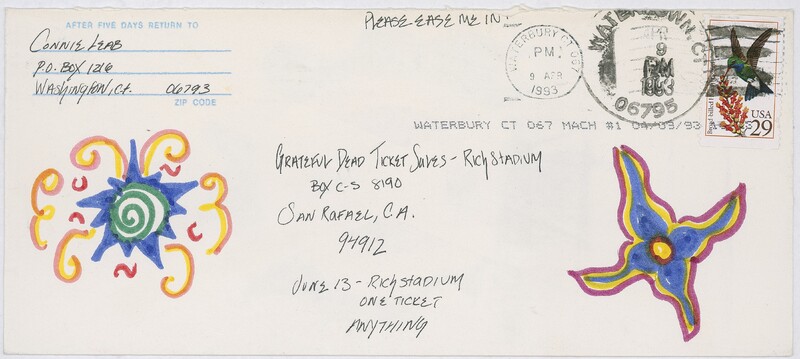 AFTER FIVE DAYS RETURN TO
CONNIE LEAB
P.O. BOX 1216
WASHINGTON, Ct. 06793
ZIP CODE
PLEASE EASE ME IN!
WATERBURY CT 067
PM
9 APR
1993
WATERTOWN, CT
APR
9
PM
1993
06795
Broad-billed
USA
29
WATERBURY CT 067 MACH #1 04/09/93
GRATEFUL DEAD TICKET SALES - RICH STADIUM
BOX C-S 8190
SAN RAFAEL, C.A.
94912
JUNE 13 - RICH STADIUM
ONE TICKET
ANYTHING